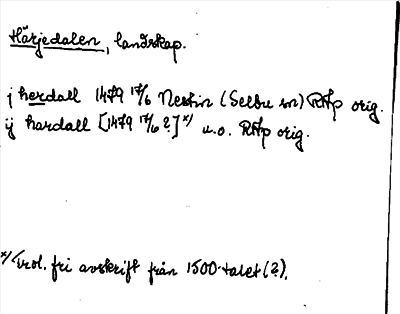 Härjedalen, landskap.
j herdall 1479 17/6 Nestin (Selbu sn) RAp orig.
ij hardall [1479 17/6 ?] x) u.o. RAp orig.
x) Trol. fri avskrift från 1500-talet (?).